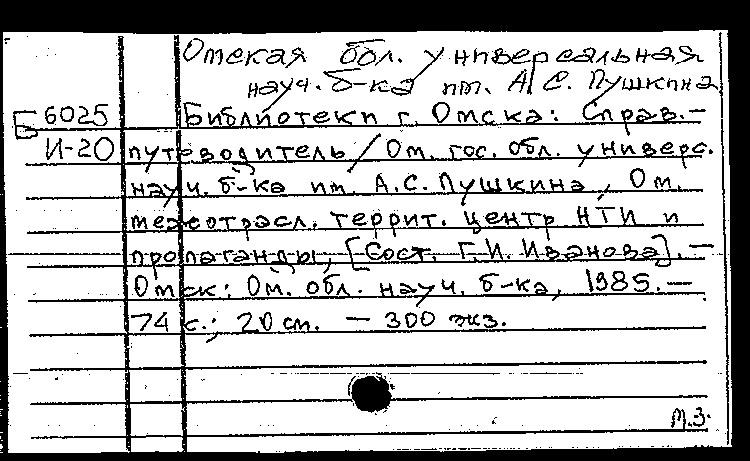 Омская обл. универсальная
науч. б-ка им. А.С. Пушкина
Б 6025 Библиотеки г. Омска: Справ.-
И-20 путеводитель / Ом. гос. обл. универс.
науч. б-ка им. А.С. Пушкина, Ом.
межотрасл. террит. центр НТИ и
пропаганды; [Сост. Г.И. Иванова]. —
Омск: Ом. обл. науч. б-ка, 1985. —
74 с.; 20 см. — 300 экз.
М.З.